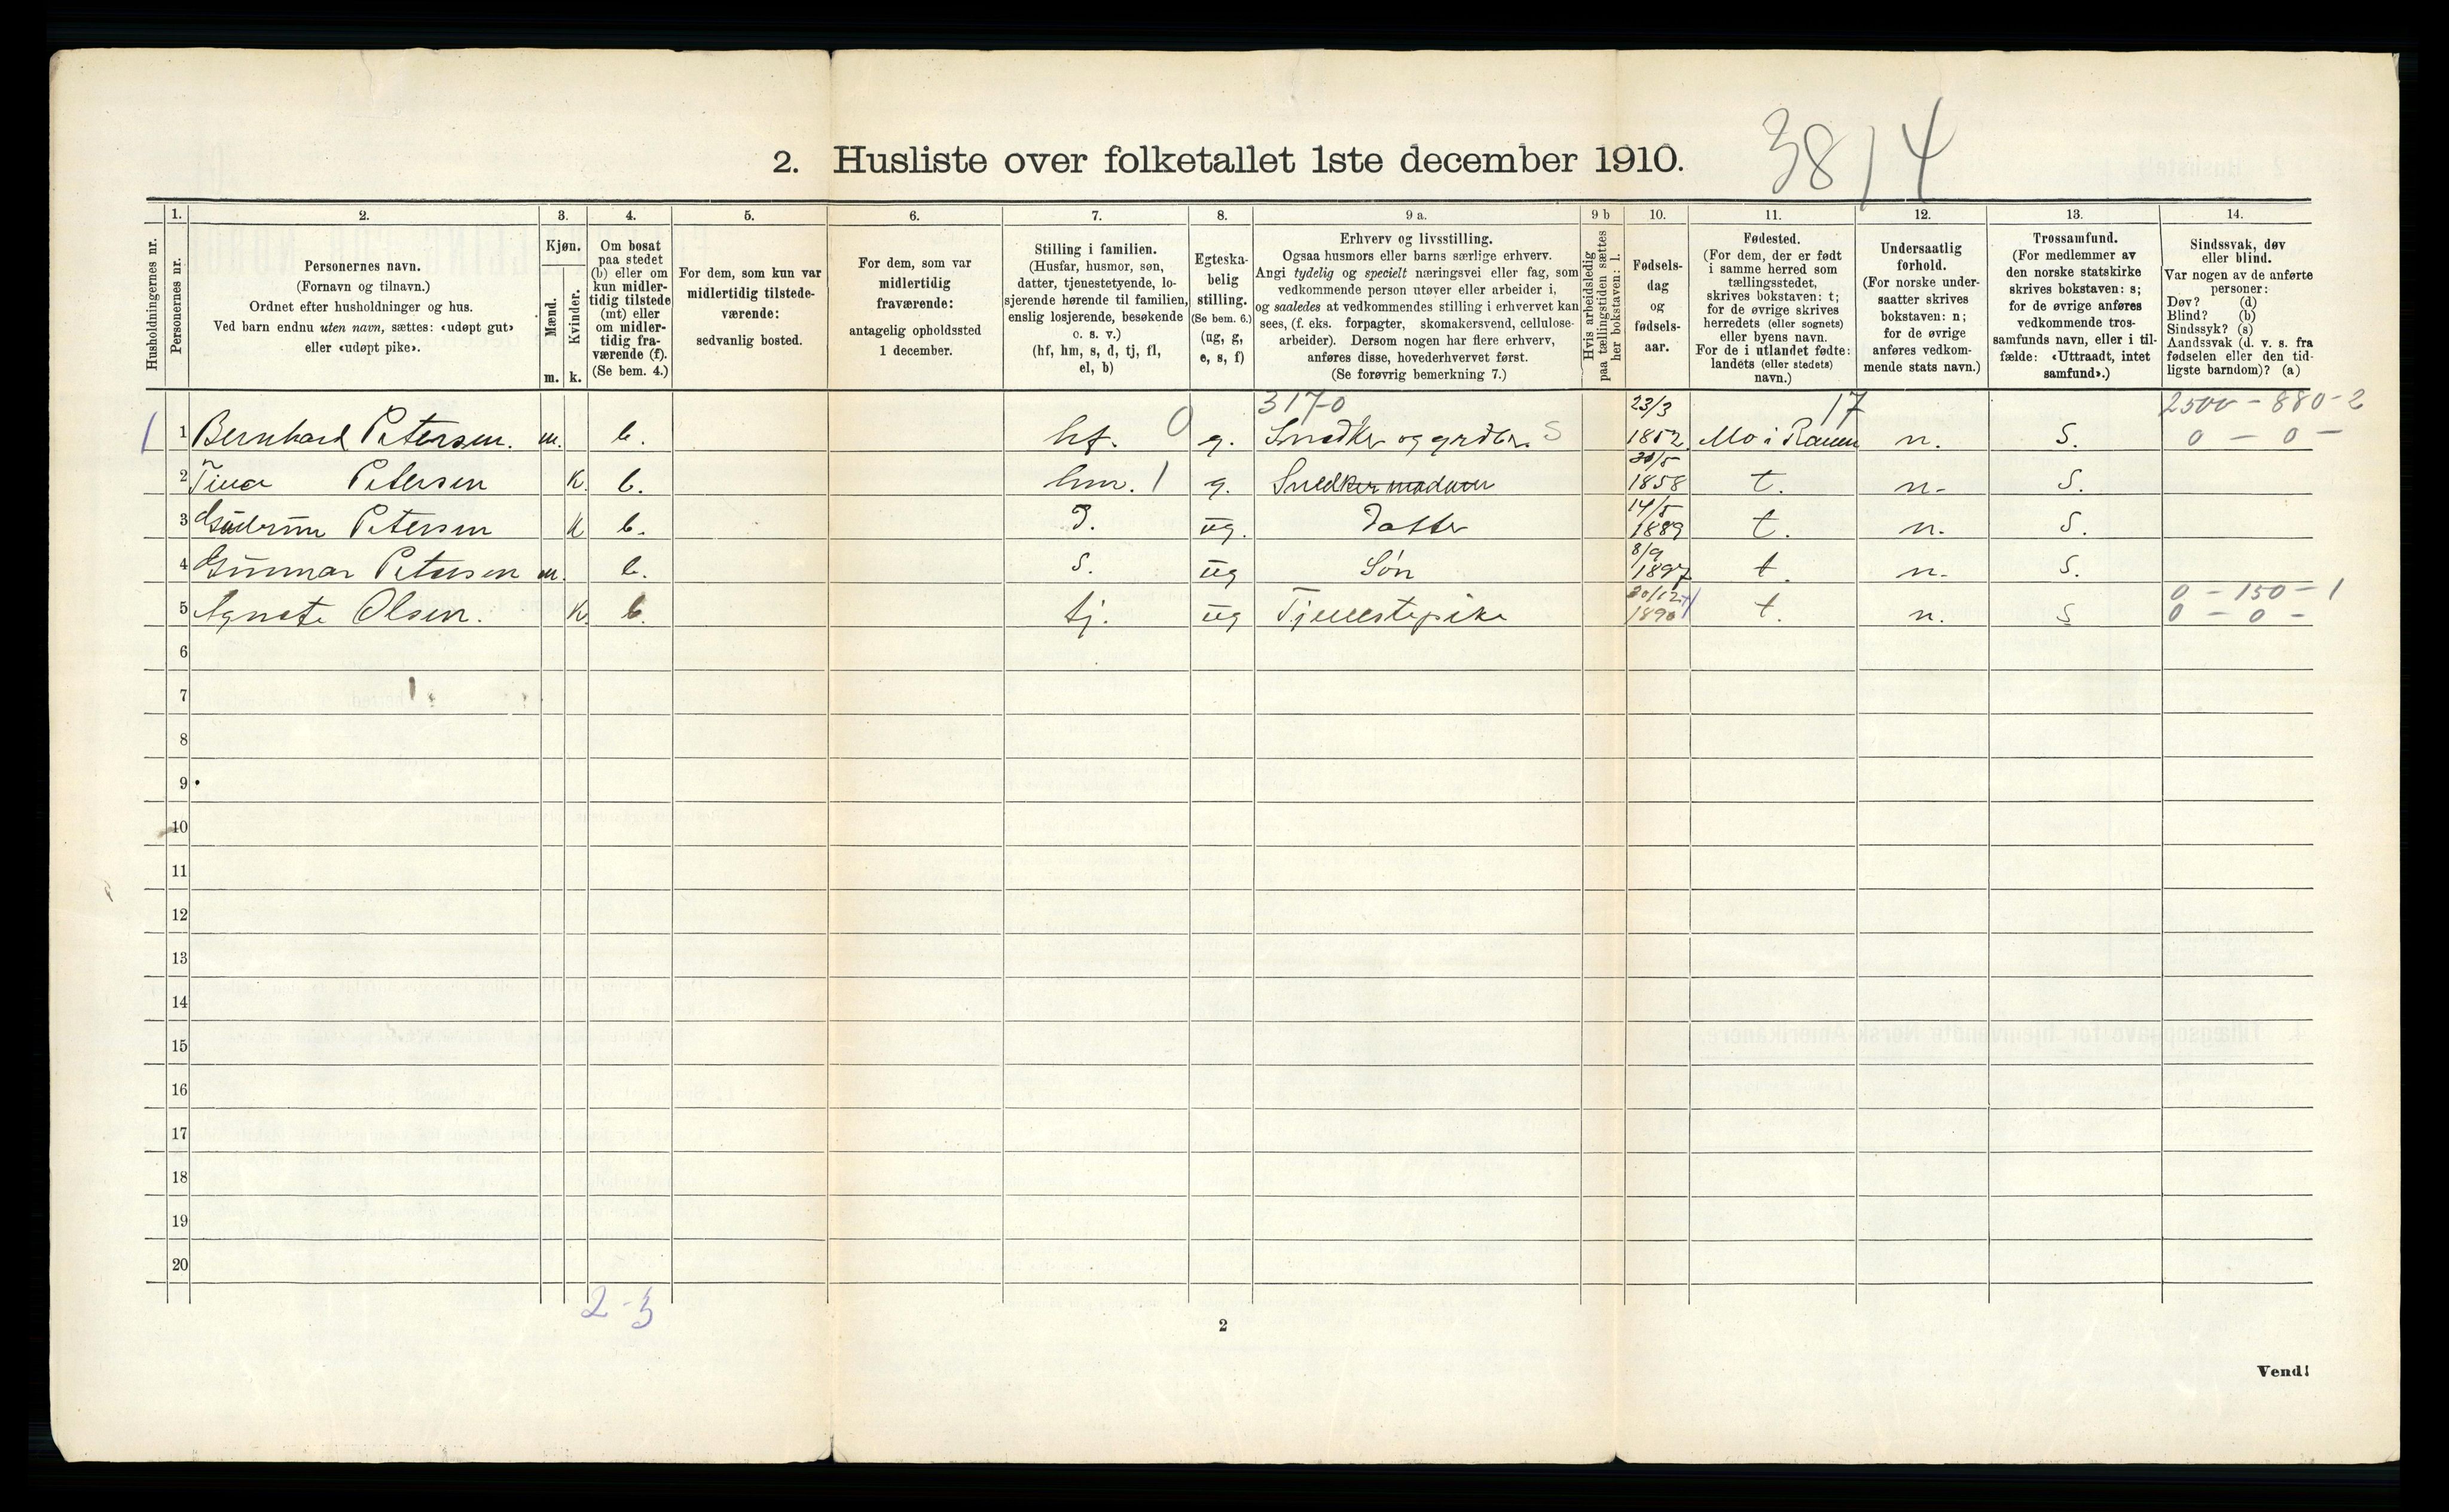 3814
2. Husliste over folketallet 1ste december 1910.
Husholdningernes nr.
1. Personernes nr.
2. Personernes navn. (Fornavn og tilnavn.) Ordnet efter husholdninger og hus. Ved barn endnu uten navn, sættes: «udøpt gut» eller «udøpt pike».
3. Kjøn. Mænd. m. Kvinder. k.
4. Om bosat paa stedet (b) eller om kun midler-tidig tilstede (mt) eller om midler-tidig fra-værende (f). (Se bem. 4.)
5. For dem, som kun var midlertidig tilstede-værende: sedvanlig bosted.
6. For dem, som var midlertidig fraværende: antagelig opholdssted 1 december.
7. Stilling i familien. (Husfar, husmor, søn, datter, tjenestetyende, lo-sjerende hørende til familien, enslig losjerende, besøkende o. s. v.) (hf, hm, s, d, tj, fl, el, b)
8. Egteska-belig stilling. (Se bem. 6.) (ug, g, e, s, f)
9 a. Erhverv og livsstilling. Ogsaa husmors eller barns særlige erhverv. Angi tydelig og specielt næringsvei eller fag, som vedkommende person utøver eller arbeider i, og saaledes at vedkommendes stilling i erhvervet kan sees, (f. eks. forpagter, skomakersvend, cellulose-arbeider). Dersom nogen har flere erhverv, anføres disse, hovederhvervet først. (Se forøvrig bemerkning 7.)
9 b Hvis arbeidsledig paa tællingstiden sættes her bokstaven: l.
10. Fødsels-dag og fødsels-aar.
11. Fødested. (For dem, der er født i samme herred som tællingsstedet, skrives bokstaven: t; for de øvrige skrives herredets (eller sognets) eller byens navn. For de i utlandet fødte: landets (eller stedets) navn.)
12. Undersaatlig forhold. (For norske under-saatter skrives bokstaven: n; for de øvrige anføres vedkom-mende stats navn.)
13. Trossamfund. (For medlemmer av den norske statskirke skrives bokstaven: s; for de øvrige anføres vedkommende tros-samfunds navn, eller i til-fælde: «Uttraadt, intet samfund».)
14. Sindssvak, døv eller blind. Var nogen av de anførte personer: Døv? (d) Blind? (b) Sindssyk? (s) Aandssvak (d. v. s. fra fødselen eller den tid-ligste barndom)? (a)
3170 23/3 17 2500 - 880 - 2
1 1 Bernhard Petersen. m. b. hf. 0 g. Snedker og grdbr. S 1852 Mo i Ranen n. S. 0 - 0 -
2 Tina Petersen K. b. hm. 1 g. Snedkermadam 30/5 1858 t. n- S.
3 Gudrun Petersen K b. D. ug. Datter 14/5 1889 t. n. S.
4 Gunnar Petersen m. b. s. ug Søn 8/9 1897 t. n- S.
5 Agnete Olsen. K. b. tj. ug Tjenestepike 20/12 1890 t. n. S 0 - 150 - 1 0 - 0 -
6
7
8
9
10
11
12
13
14
15
16
17
18
19
20
2-3
2
Vend!